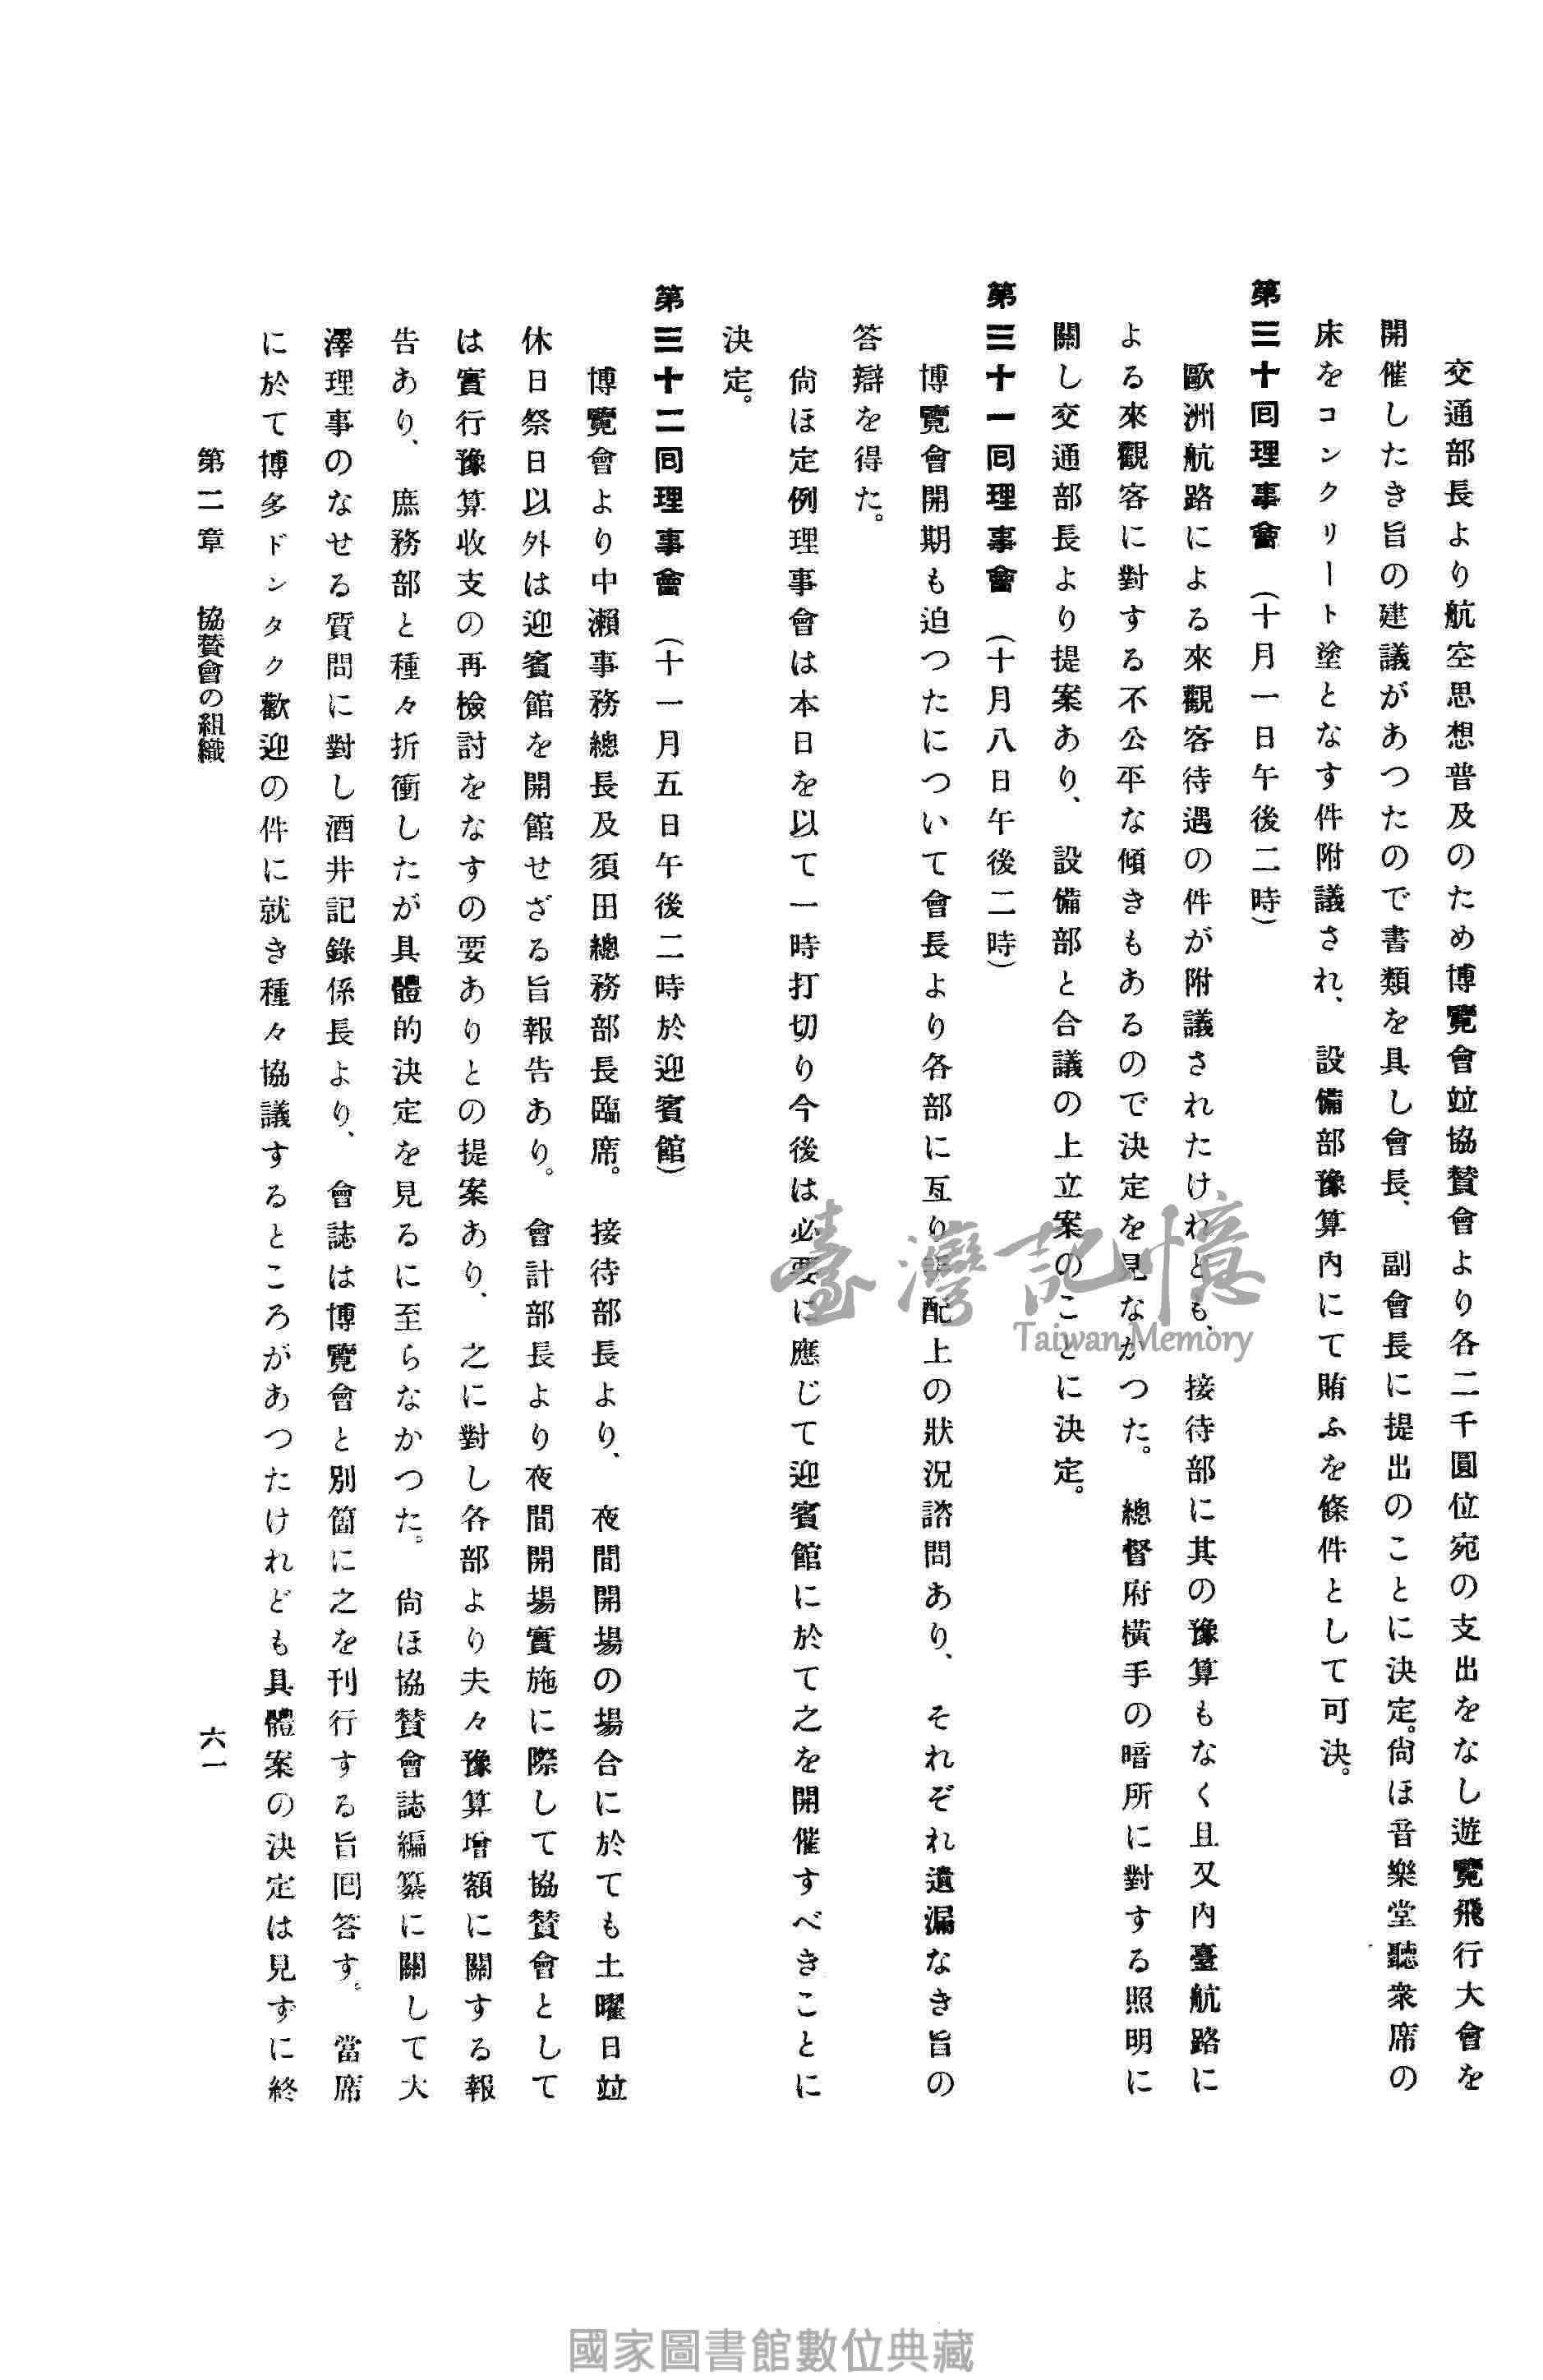 交通部長より航空思想普及のため博覽會竝協賛會より各二千圓位宛の支出をなし遊覽飛行大會を
開催したき旨の建議があつたので書類を具し會長、副會長に提出のことに決定。尙ほ音樂堂聽衆席の
床をコンクリート塗となす件附議され、設備部豫算内にて賄ふを條件として可決。
第三十囘理事會（十月一日午後二時）
歐洲航路による來觀客待遇の件が附議されたけれども、接待部に其の豫算もなく且又内臺航路に
よる來觀客に對する不公平な傾きもあるので決定を見なかつた。總督府橫手の暗所に對する照明に
關し交通部長より提案あり、設備部と合議の上立案のことに決定。
第三十一囘理事會（十月八日午後二時）
博覽會開期も迫つたについて會長より各部に亙り手配上の狀況諮問あり、それぞれ遺漏なき旨の
答辯を得た。
尙ほ定例理事會は本日を以て一時打切り今後は必要に應じて迎賓館に於て之を開催すべきことに
決定。
第三十二囘理事會（十一月五日午後二時於迎賓館）
博覽會より中瀨事務總長及須田總務部長臨席。接待部長より、夜間開場の場合に於ても土曜日竝
休日祭日以外は迎賓館を開館せざる旨報告あり。會計部長より夜間開場實施に際して協賛會として
は實行豫算收支の再檢討をなすの要ありとの提案あり、之に對し各部より夫々豫算增額に關する報
告あり、庶務部と種々折衝したが具體的決定を見るに至らなかつた。尙ほ協賛會誌編纂に關して大
澤理事のなせる質問に對し酒井記錄係長より、會誌は博覽會と別箇に之を刊行する旨囘答す。當席
に於て博多ドンタク歡迎の件に就き種々協議するところがあつたけれども具體案の決定は見ずに終
第二章　協賛會の組織
六一
臺灣記憶
Taiwan Memory
國家圖書館數位典藏